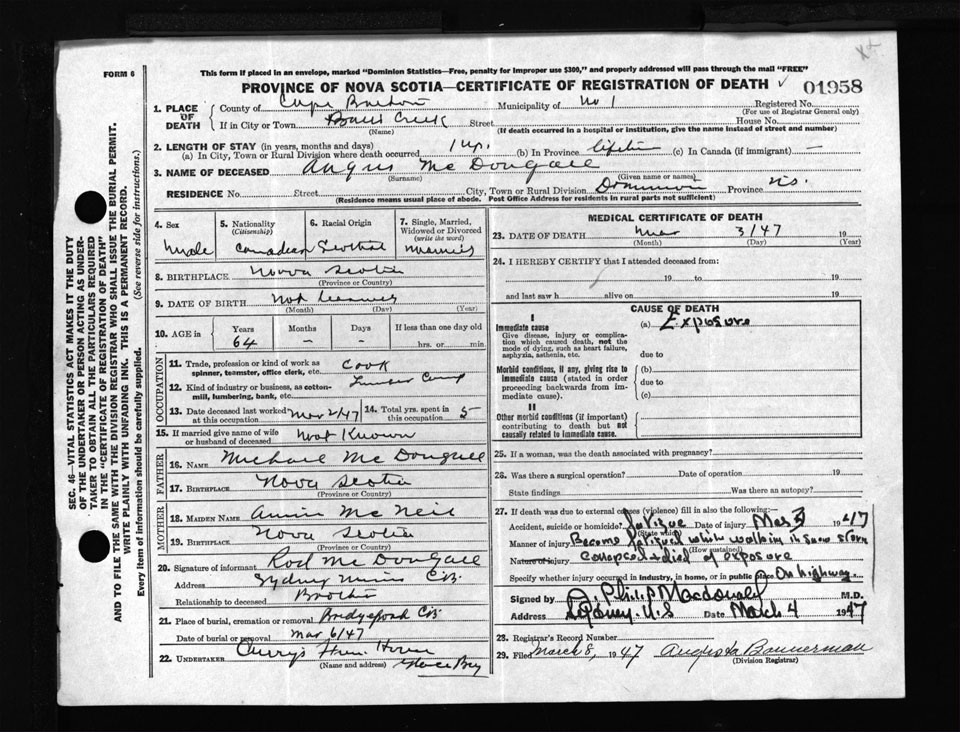 FORM 6
This form if placed in an envelope, marked "Dominion Statistics—Free, penalty for improper use $300," and properly addressed will pass through the mail "FREE"
PROVINCE OF NOVA SCOTIA—CERTIFICATE OF REGISTRATION OF DEATH ✓ 01958
1. PLACE OF DEATH
County of Cape Breton Municipality of No 1 Registered No.
(For use of Registrar General only)
If in City or Town Creek Street House No.
(Name) (If death occurred in a hospital or institution, give the name instead of street and number)
2. LENGTH OF STAY (in years, months and days)
(a) In City, Town or Rural Division where death occurred 1 (b) In Province lifetime (c) In Canada (if immigrant) —
3. NAME OF DECEASED Angus McDougall
(Surname) (Given name or names)
RESIDENCE No. Street City, Town or Rural Division Dominion Province N.S.
(Residence means usual place of abode. Post Office Address for residents in rural parts not sufficient)
4. Sex
Male
5. Nationality
(Citizenship)
Canadian
6. Racial Origin
Scotch
7. Single, Married, Widowed or Divorced
(write the word)
Married
8. BIRTHPLACE Nova Scotia
(Province or Country)
9. DATE OF BIRTH Not
(Month) (Day) (Year)
10. AGE in
Years Months Days If less than one day old
64 – – hrs. or min.
OCCUPATION
11. Trade, profession or kind of work as spinner, teamster, office clerk, etc. Cook
12. Kind of industry or business, as cotton-mill, lumbering, bank, etc. Lumber Camp
13. Date deceased last worked at this occupation Mar 2/47
14. Total yrs. spent in this occupation 5
15. If married give name of wife or husband of deceased Not Known
FATHER
16. NAME Michael McDougall
17. BIRTHPLACE Nova Scotia
(Province or Country)
MOTHER
18. MAIDEN NAME Annie McNeil
19. BIRTHPLACE Nova Scotia
(Province or Country)
20. Signature of informant Rod McDougall
Address Sydney Mines C.B.
Relationship to deceased Brother
21. Place of burial, cremation or removal C.B.
Date of burial or removal Mar 6/47
22. UNDERTAKER Curry's Home
(Name and address) Glace Bay
MEDICAL CERTIFICATE OF DEATH
23. DATE OF DEATH Mar 3/47 19
(Month) (Day) (Year)
24. I HEREBY CERTIFY that I attended deceased from:
19 to 19
and last saw h alive on 19
CAUSE OF DEATH
I
Immediate cause (a) Exposure
Give disease, injury or complication which caused death, not the mode of dying, such as heart failure, asphyxia, asthenia, etc.
due to
Morbid conditions, if any, giving rise to immediate cause (stated in order proceeding backwards from immediate cause).
(b)
due to
(c)
II
Other morbid conditions (if important) contributing to death but not causally related to immediate cause.
25. If a woman, was the death associated with pregnancy?
26. Was there a surgical operation? Date of operation 19
State findings Was there an autopsy?
27. If death was due to external causes (violence) fill in also the following:—
Accident, suicide or homicide? fatigue Date of injury Mar 3 1947
(State which)
Manner of injury Became fatigued while walking in snow storm
(How sustained)
Nature of injury collapsed & died of exposure
Specify whether injury occurred in industry, in home, or in public place On highway
Signed by Philip Macdonald M.D.
Address Sydney N.S Date March 4 1947
28. Registrar's Record Number
29. Filed March 8, 1947 Augusta Bannerman
(Division Registrar)
SEC. 46—VITAL STATISTICS ACT MAKES IT THE DUTY
OF THE UNDERTAKER OR PERSON ACTING AS UNDER-
TAKER TO OBTAIN ALL THE PARTICULARS REQUIRED
IN THE "CERTIFICATE OF REGISTRATION OF DEATH"
AND TO FILE THE SAME WITH THE DIVISION REGISTRAR WHO SHALL ISSUE THE BURIAL PERMIT.
WRITE PLAINLY WITH UNFADING INK. THIS IS A PERMANENT RECORD.
Every item of information should be carefully supplied. (See reverse side for instructions.)